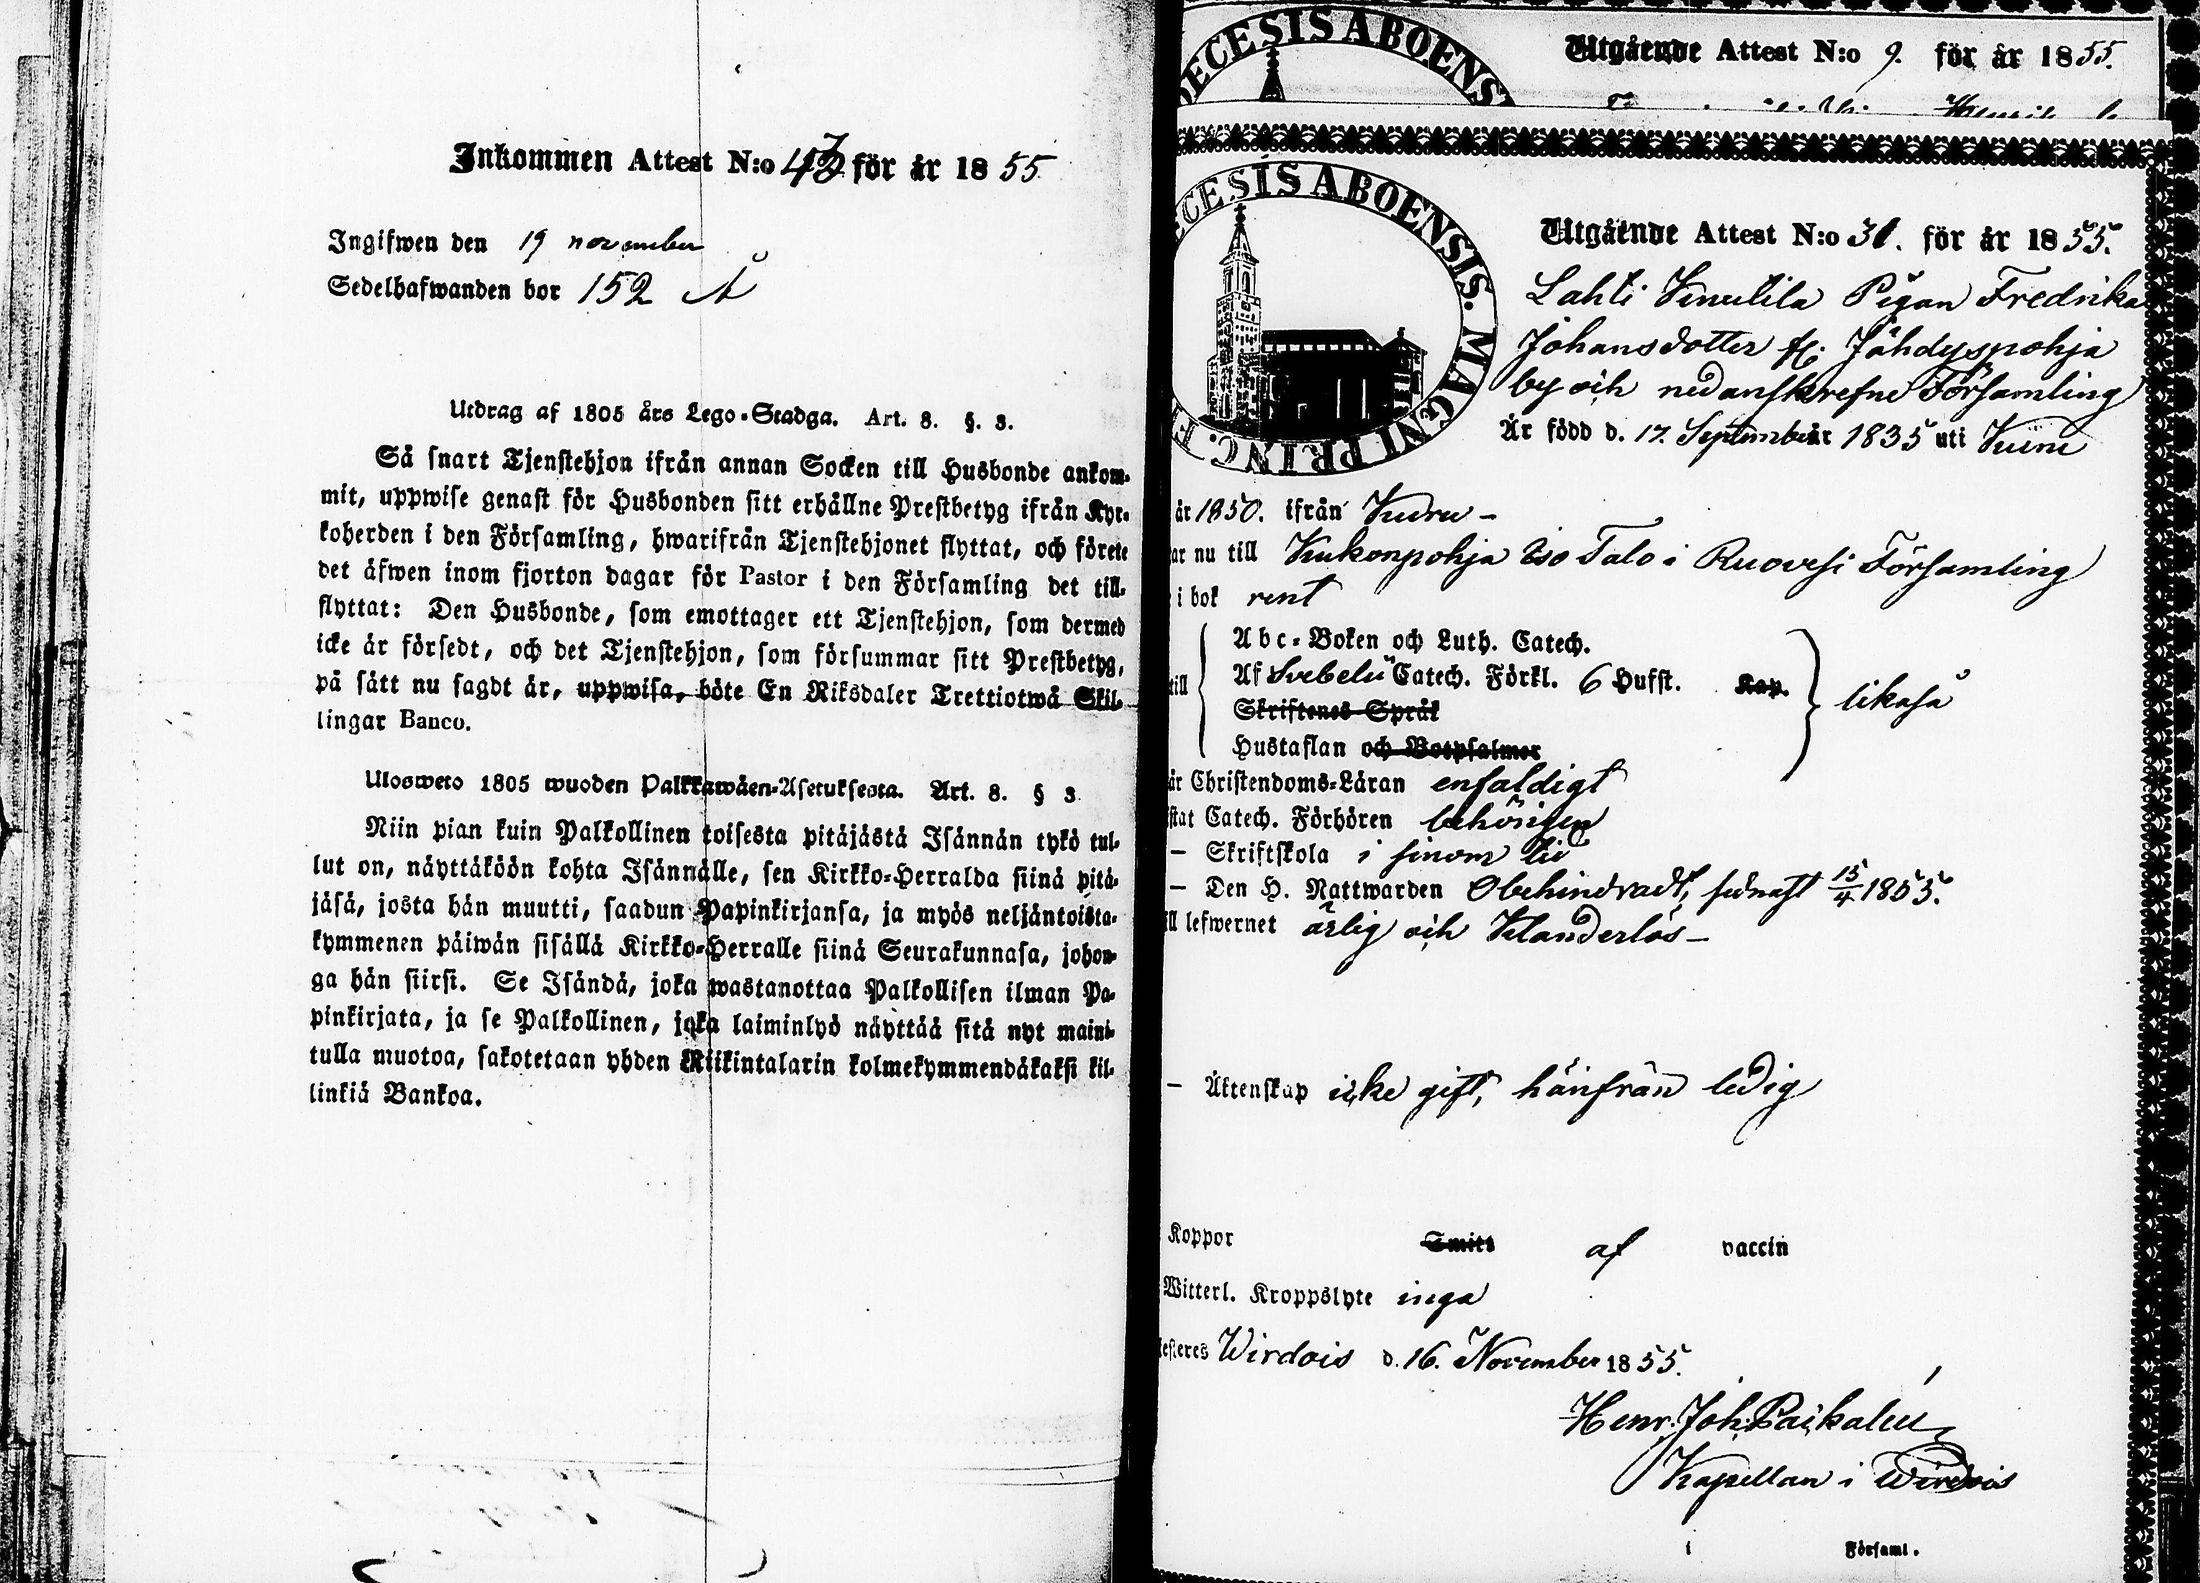 Inkommen Attest N:o 43 för år 1855
Ingifwen den 19 november
Sedelhafwanden bor 152 Å
Utdrag af 1805 års Lego-Stadga. Art. 8. §. 3.
Så snart Tjenstehjon ifrån annan Socken till Husbonde ankom-
mit, uppwise genast för Husbonden sitt erhållne Prestbetyg ifrån Kyr-
koherden i den Församling, hwarifrån Tjenstehjonet flyttat, och förete
det äfwen inom fjorton dagar för Pastor i den Församling det till-
flyttat: Den Husbonde, som emottager ett Tjenstehjon, som dermed
icke är försedt, och det Tjenstehjon, som försummar sitt Prestbetyg,
på sätt nu sagdt är, uppwisa, böte En Riksdaler Trettiotwå Skil-
lingar Banco.
Ulosweto 1805 wuoden Palkkawäen-Asetuksesta. Art. 8. § 3
Niin pian kuin Palkollinen toisesta pitäjästä Isännän tykö tul-
lut on, näyttäköön kohta Isännälle, sen Kirkko-Herralda siinä pitä-
jäsä, josta hän muutti, saadun Papinkirjansa, ja myös neljäntoista-
kymmenen päiwän sisällä Kirkko-Herralle siinä Seurakunnasa, johon-
ga hän siirsi. Se Isändä, joka wastanottaa Palkollisen ilman Pa-
pinkirjata, ja se Palkollinen, joka laiminlyö näyttää sitä nyt maini-
tulla muotoa, sakotetaan yhden Riikintalarin kolmekymmendäkaksi kil-
linkiä Bankoa.
DECESIS ABOENS
Utgående Attest N:o 9. för år 1855.
CESIS ABOENSIS. MAGNI PRINC. F
Utgående Attest N:o 31. för år 1855.
Lahti Knutila Pigan Fredrika
Johansdotter fr. Jähdyspohja
by och nedanskrefne Församling
Är född d. 17. September år 1835 uti Kuru
år 1850. ifrån Kuru –
ar nu till Kukonpohja Iso Talo i Ruovesi Församling
i bok rent
till
Abc-Boken och Luth. Catech.
Af Svebelii Catech. Förkl. 6 Hufst. Kap.
likaså
Skriftenes Språk
Hustaflan och Botpsalmer
är Christendoms-Läran enfaldigt
stat Catech. Förhören behörigen
— Skriftskola i sinom tid
— Den H. Nattwarden Obehindradt, sednast 15/4 1855.
ill lefwernet ärlig och klanderlös –
— Äktenskap icke gift, härifrån ledig
Koppor Smitt af vaccin
Witterl. Kroppslyte inga
esteres Wirdois d. 16. November 1855.
Henr. Joh. Paikalen
Kapellan i Wirdois
i Församl.